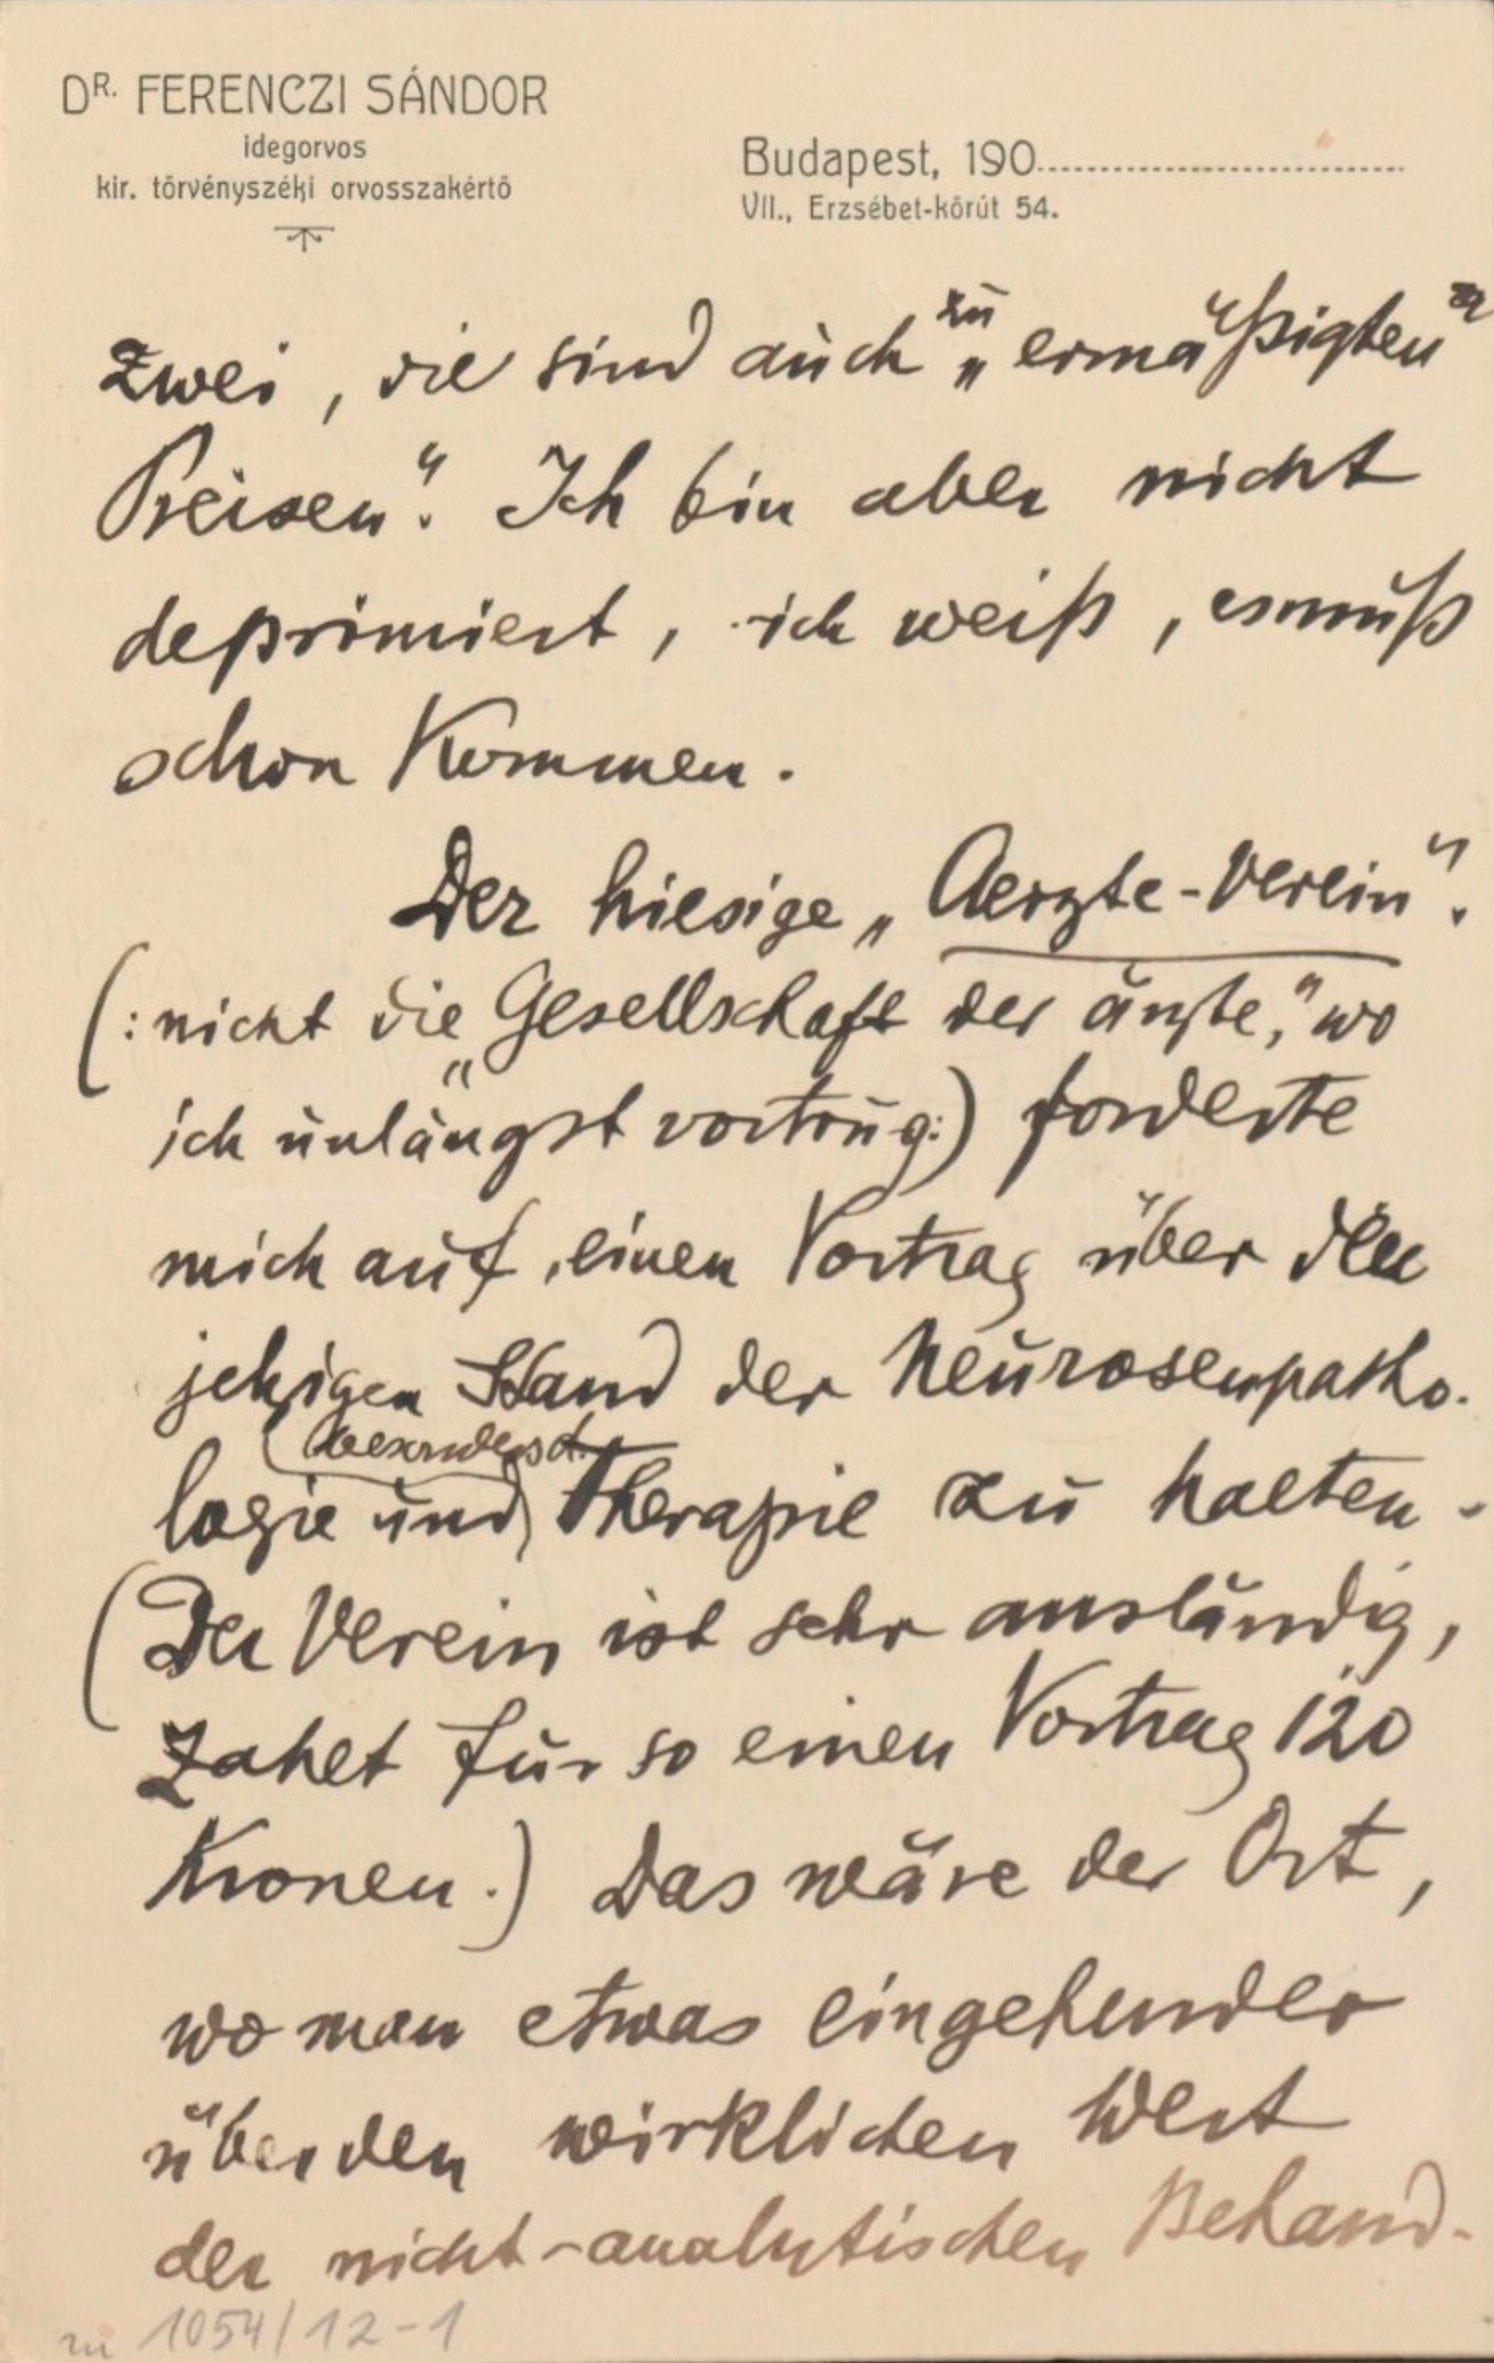 DR. FERENCZI SÁNDOR
idegorvos
kir. törvényszéki orvosszakértő
Budapest, 190
VII., Erzsébet-körút 54.
zwei, die sind auch zu „ermäßigten
Preisen“. Ich bin aber nicht
deprimiert, ich weiß, es muß
schon Kommen.
Der hiesige „Aerzte-Verein“.
(: nicht die „Gesellschaft der ärzte,“ wo
ich unlängst vortrug:) forderte
mich auf, einen Vortrag über den
jetzigen Stand der Neurosenpatho-
(besonders d.)
logie und Therapie zu halten.
(Der Verein ist sehr anständig,
zahlt für so einen Vortrag 120
Kronen.) Das wäre der Ort,
wo man etwas eingehender
über den wirklichen Wert
der nicht-analytischen Behand-
zu 1054/12-1